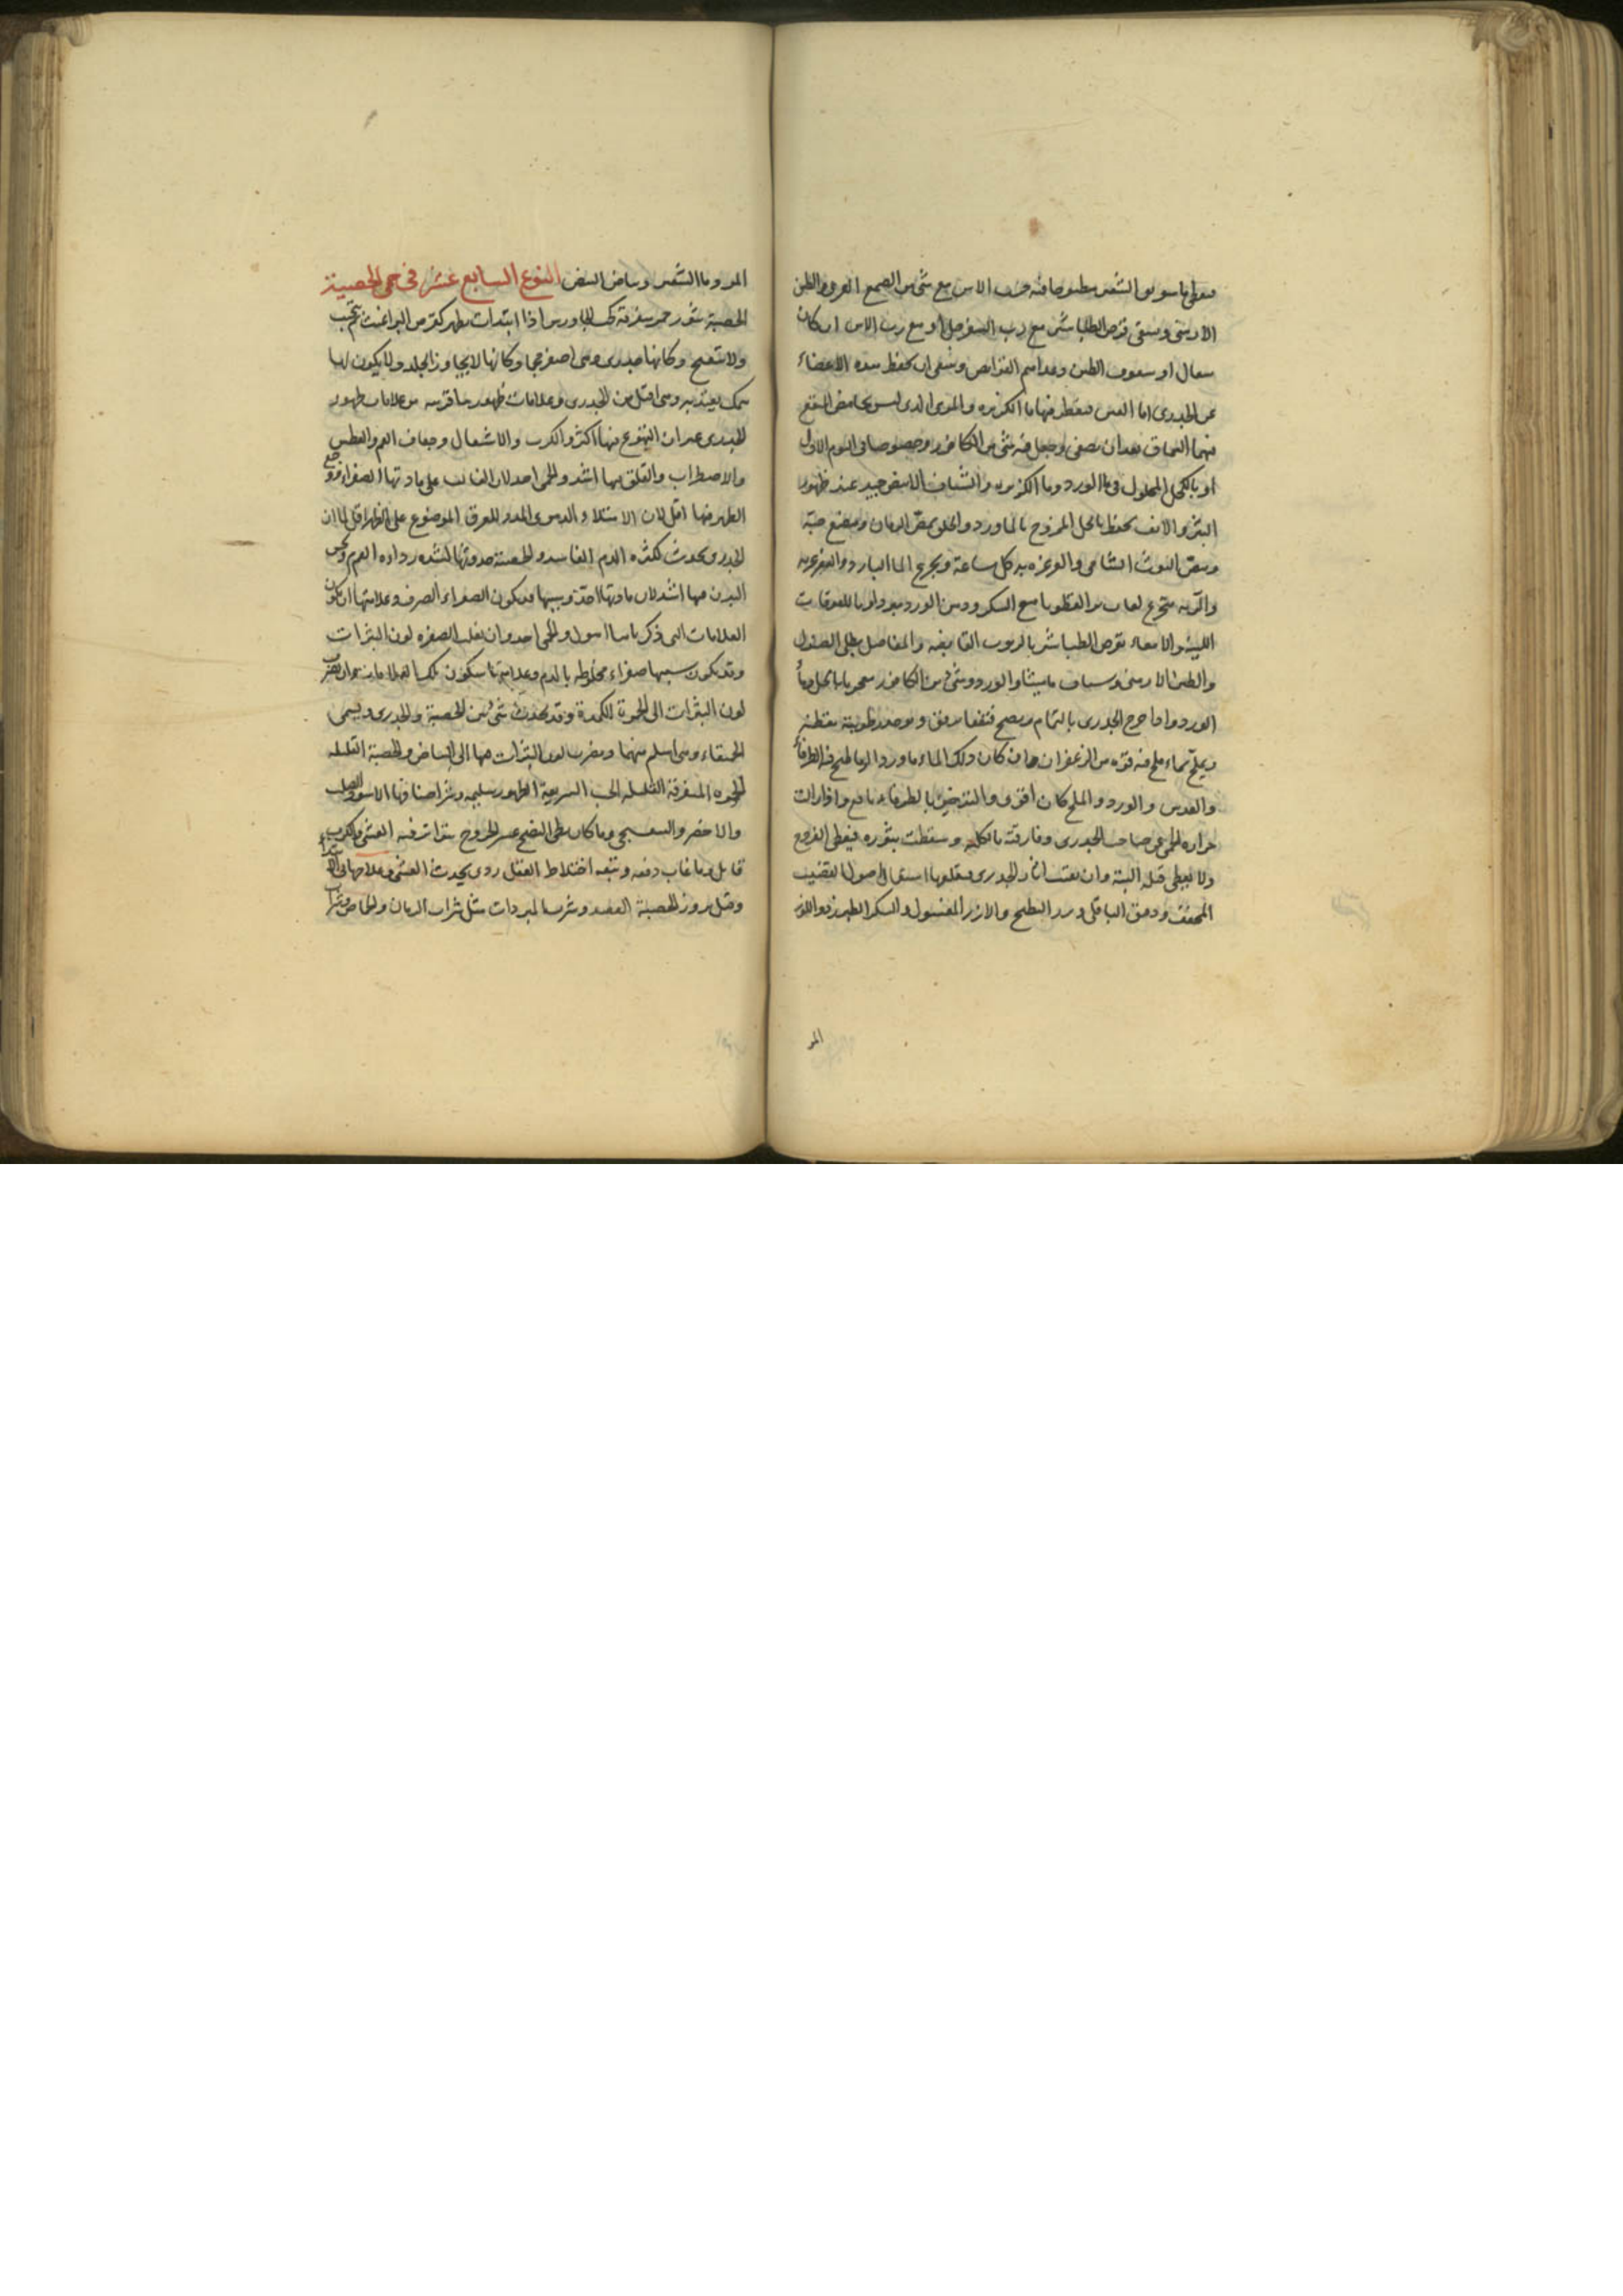 فيعطى ماء سويق الشعير مطبوخا فيه حب الاس مع شئ من الصمغ العربى والطين
الارمنى ويسقى قرص الطباشير مع رب السفرجل او مع رب الاس ان كان
سعال او سفوف الطين وينبغى ان يحفظ هذه الاعضاء
عن الجدرى اما العين فيقطر فيها ماء الكزبره
فيها السماق بعد ان يصفى ويجعل فيه شئ من الكافور وخصوصا فى اليوم الاول
او بالكحل المحلول فى ماء الورد وماء الكزبره والشياف الابيض جيد عند ظهور
البثر والانف يحفظ بالخل الممزوج بالماورد والحلق بمص الرمان ومضغ حبه
ومص التوت الشامى والغرغره به كل ساعة وتجرع الماء البارد والغرغره به
والريه بتجرع لعاب بزر القطونا مع السكر ودهن الورد
اللينة والامعاء بقرص الطباشير بالربوب القابضه والمفاصل بطلى الصندل
والطين الارمنى وشياف ماميثا والورد وشئ من الكافور
الورد واذا خرج الجدرى بالتمام ونضج
ويملح بماء ملح فيه قوة من الزعفران وان كان ذلك الماء ماورد
والعدس والورد والملح كان اقوى والتدخين بالطرفاء نافع واذا زالت
حراره الحمى عن صاحب الجدرى وفارقته بالكليه وسقطت بثوره فيعطى الفروج
ولا يعطى قبله البتة وان بقيت اثار الجدرى فيقلعها استعمال اصول القصب
المجفف ودقيق الباقلى وبزر البطيخ والارز المغسول والسكر الطبرزد واللوز
المر
المر وماء الشعير وبياض البيض النوع السابع عشر فى حمى الحصبة
الحصبة بثور حمر متفرقة كحب الجاورس اذا ابتدات يظهر كقرص البراغيث ثم تحبب
ولا تتقيح وكانها جدرى وهى اصغر حجما وكانها لا يجاوز الجلد ولا يكون لها
سمك يعتد به وهى اقل من الجدرى وعلامات ظهورها قريبه من علامات ظهور
الجدرى غير ان التهوع فيها اكثر والكرب والاشتعال وجفاف الفم والعطش
والاضطراب والقلق فيها اشد والحمى احد لان الغالب على مادتها الصفراء ووجع
الظهر فيها اقل لان الامتلاء الدموى الممدد للعرق الموضوع على الظهر اقل لما ان
الجدرى يحدث لكثره الدم الفاسد والحصبة حدوثها لشده رداءه الدم
البدن فيها اشد لان مادتها احد وسببها قد يكون الصفراء الصرف وعلامتها ان يكون
العلامات التى ذكرناها اسوا والحمى احد وان يغلب الصفره لون البثرات
وقد يكون سببها صفراء مخلوطه بالدم وعلامتها سكون تلك العلامات وان يضرب
لون البثرات الى الحمرة الكمدة وقد يحدث شئ بين الحصبة والجدرى ويسمى
الحميقاء وهى اسلم منهما ويضرب لون البثرات فيها الى البياض والحصبة القليله
الحمره المتفرقة القليله الحب السريعة الظهور سليمه وشر اصنافها الاسود الصلب
والاخضر والبنفسجى وما كان بطى النضج عسر الخروج متواتر فيه الغشى والكرب
قاتل وما غاب دفعه ويتبعه اختلاط العقل ردى يحدث الغشى وعلاجها فى الابتداء
وقبل بروز الحصبة الفصد وشرب المبردات مثل شراب الرمان والحماض وشراب